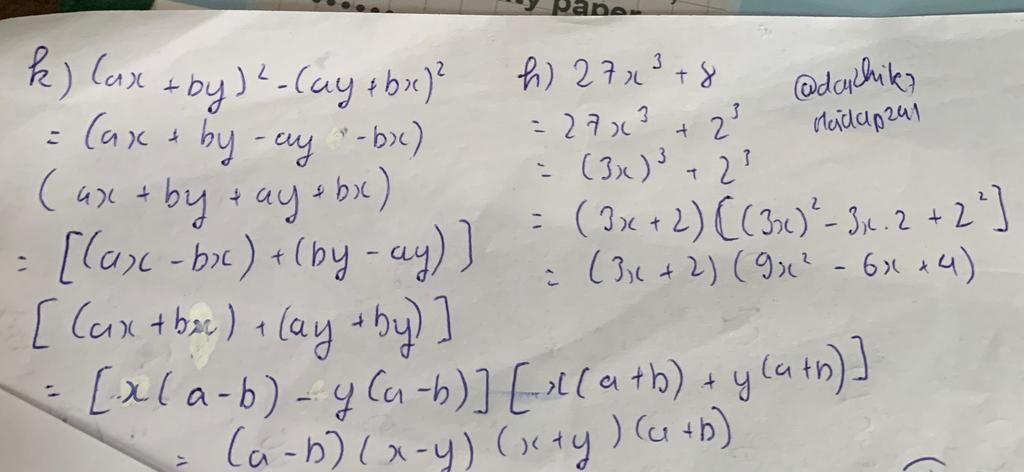 k) (ax + by)² - (ay + bx)²
= (ax + by - ay - bx)
(ax + by + ay + bx)
= [(ax - bx) + (by - ay)]
[(ax + bx) + (ay + by)]
= [x(a - b) - y(a - b)] [x(a + b) + y(a + b)]
= (a - b) (x - y) (x + y) (a + b)
h) 27x³ + 8
= 27x³ + 2³
= (3x)³ + 2³
= (3x + 2) [(3x)² - 3x . 2 + 2²]
= (3x + 2) (9x² - 6x + 4)